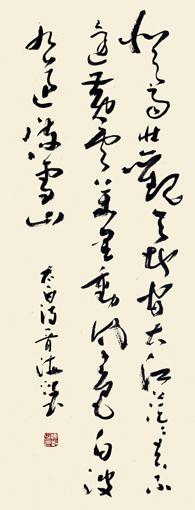 登高壯觀天地間大江茫茫去不
還黃雲萬里動風色白波
九道流雪山
太白詩